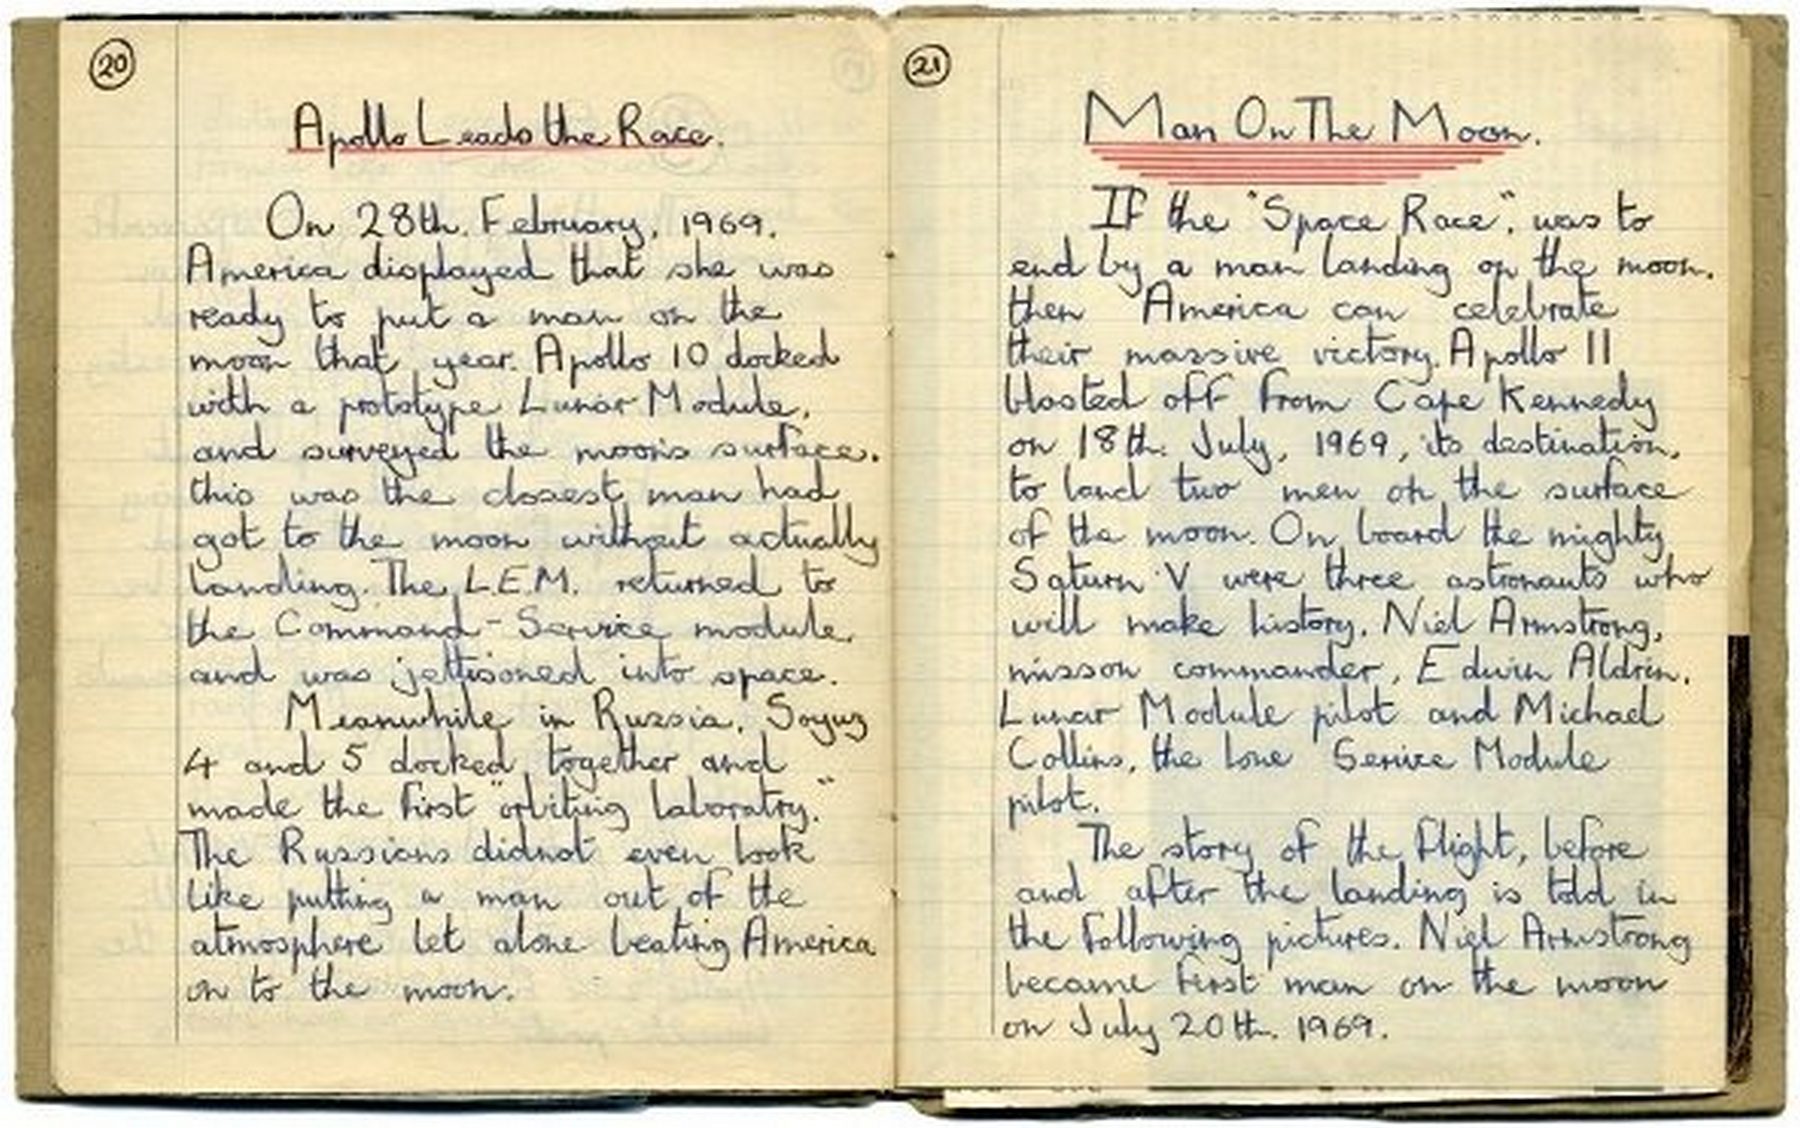 20
Apollo Leads the Race.
On 28th. February, 1969.
America displayed that she was
ready to put a man on the
moon that year. Apollo 10 docked
with a prototype Lunar Module,
and surveyed the moon's surface.
this was the closest man had
got to the moon without actually
landing. The L.E.M. returned to
the Command-Service module,
and was jettisoned into space.
Meanwhile in Russia, Soyuz
4 and 5 docked together and
made the first "orbiting laboratry."
The Russians didnot even look
like putting a man out of the
atmosphere let alone beating America
on to the moon.
21
Man On The Moon.
If the "Space Race", was to
end by a man landing on the moon,
then America can celebrate
their massive victory. Apollo 11
blasted off from Cape Kennedy
on 18th. July, 1969, its destination,
to land two men on the surface
of the moon. On board the mighty
Saturn V were three astronauts who
will make history, Niel Armstrong,
misson commander, Edwin Aldrin,
Lunar Module pilot and Michael
Collins, the lone Serivce Module
pilot.
The story of the flight, before
and after the landing is told in
the following pictures. Niel Armstrong
became first man on the moon
on July 20th. 1969.